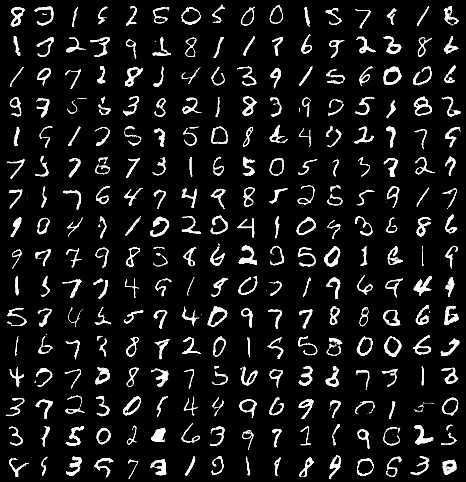 8 3 1 6 2 5 0 5 0 0 1 5 7 9 1 8
1 3 2 3 9 1 8 1 1 7 6 9 2 8 6
1 9 7 2 8 1 4 0 3 9 1 5 6 0 0 6
9 7 5 3 8 2 1 8 3 9 0 5 1 8 2
1 9 1 7 5 7 5 0 8 4 9 2 7 7 9
7 3 7 8 7 3 1 6 5 0 5 7 3 7 2 7
7 1 7 6 4 7 4 9 8 5 2 5 5 9 1 7
9 0 4 7 1 0 2 0 4 1 0 9 3 6 8 6
9 7 7 9 8 3 8 6 2 3 5 0 1 8 1 9
1 3 7 7 4 9 1 5 0 7 1 9 6 9 4 9
5 3 4 5 7 4 0 9 7 7 8 8 3 6 6
1 6 7 3 8 7 2 0 1 5 5 8 0 0 6 5
4 0 7 8 8 3 7 5 6 9 3 8 7 3 1 8
3 7 2 3 0 4 4 9 6 9 7 0 1 5 0
3 1 5 0 2 6 3 9 7 1 1 9 0 2 5
8 5 3 5 7 3 1 9 1 1 8 9 0 6 3 0